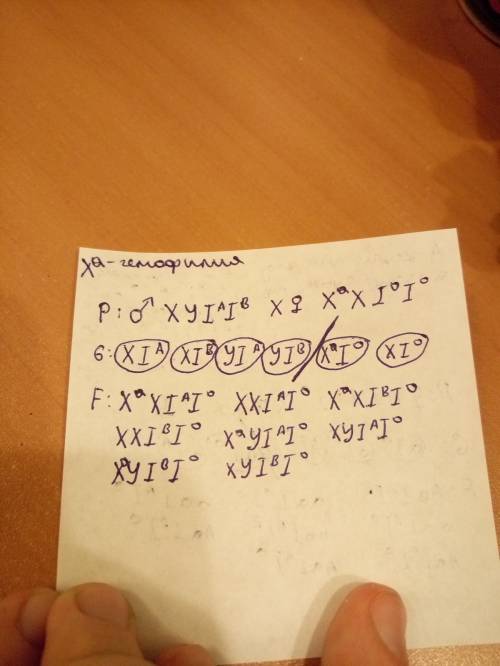 Xᵃ-гемофилия
P: ♂ XYIᴬIᴮ X ♀ XᵃXI⁰I⁰
G: XIᴬ XIᴮ YIᴬ YIᴮ / XᵃI⁰ XI⁰
F: XᵃXIᴬI⁰ XXIᴬI⁰ XᵃXIᴮI⁰
XXIᴮI⁰ XᵃYIᴬI⁰ XYIᴬI⁰
XᵃYIᴮI⁰ XYIᴮI⁰